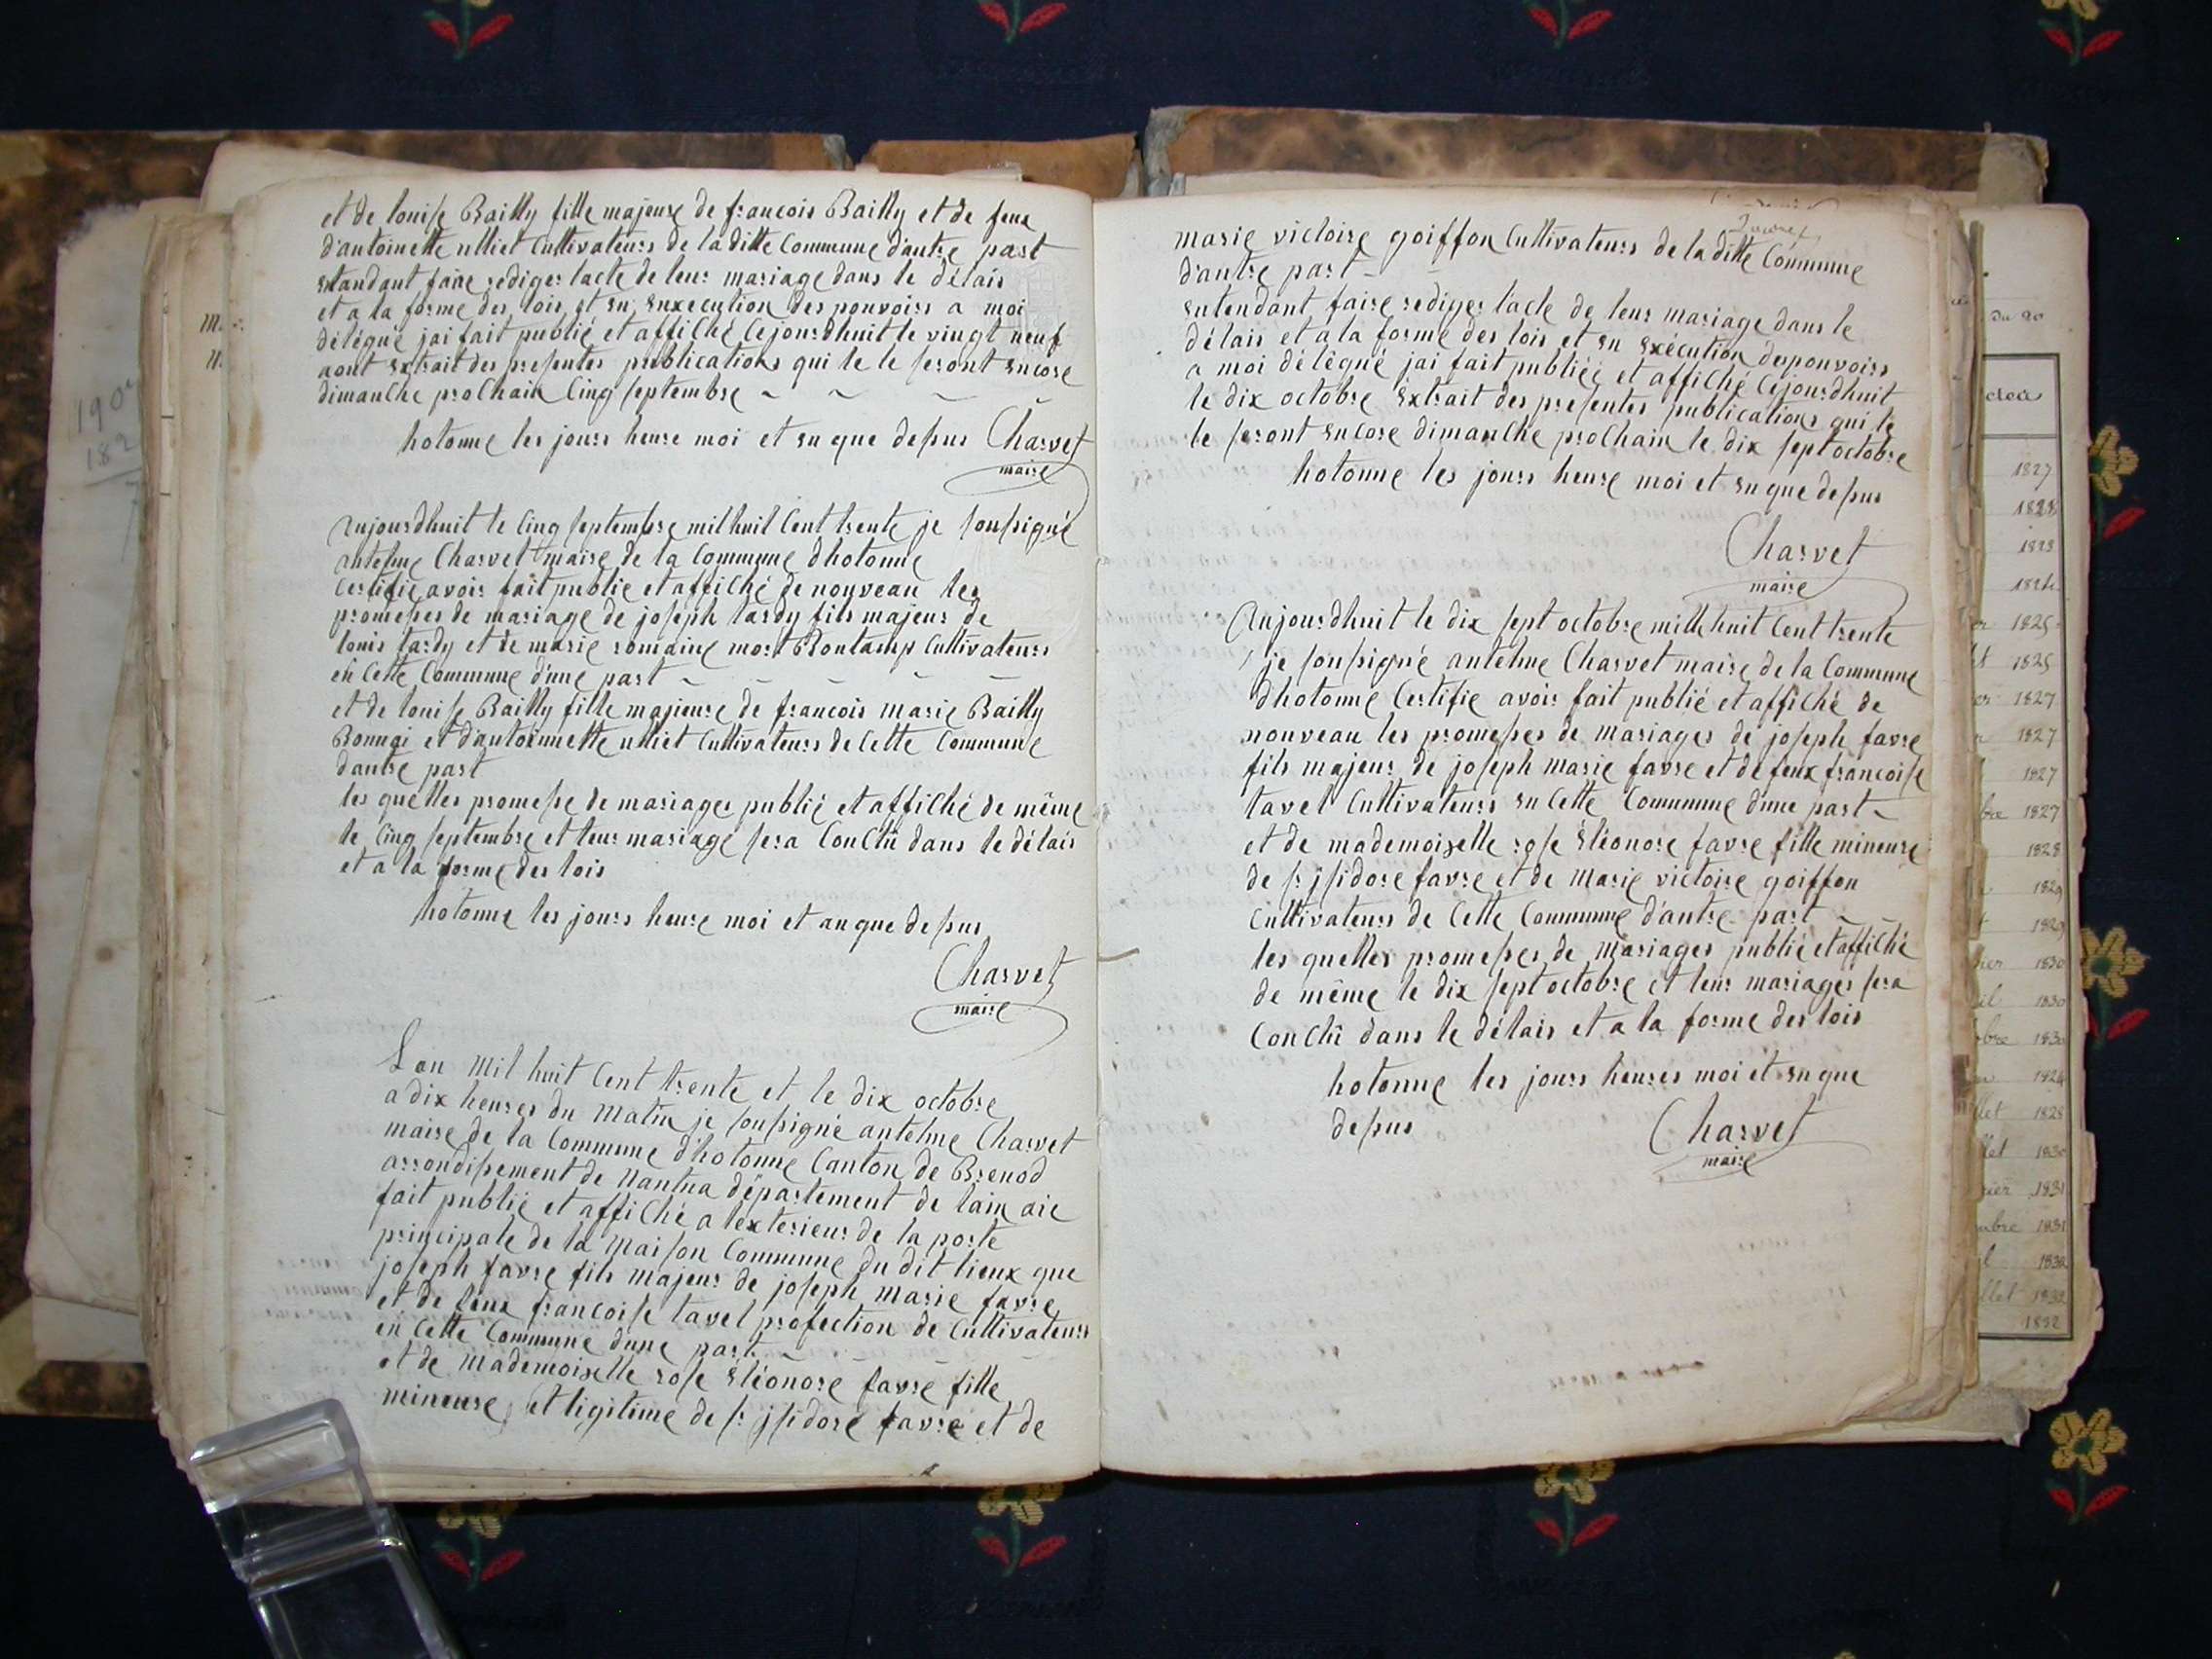 et de louise Bailly fille majeure de francois Bailly et de feux
d'antoinette ulliet Cultivateurs de la ditte Commune d'autre part
Entandant faire rediger lacte de leur mariage dans le délais
et a la forme des lois et en Enxecution des pouvoirs a moi
délégué jai fait publié et affiché Cejourdhuit le vingt neuf
aout Extrait des presentes publications qui le le seront Encore
dimanche prochain Cinq septembre ~ ~ ~ ~
hotonne les jours heure moi et en que de sus Charvet
maire
Aujourdhuit le Cinq septembre mil huit Cent trente je soussigné
antelme Charvet maire de la Commune dhotonne
Certifie avoir fait publie et affiché de nouveau les
promesses de mariage de joseph tardy fils majeur de
louis tardy et de marie romaine mort Bontamp Cultivateurs
en Cette Commune d'une part ~ ~ ~ ~ ~
et de louise Bailly fille majieure de francois marie Bailly
et d'antoinnette ulliet Cultivateurs de Cette Commune
dautre part
les quelles promesse de mariages publié et affiché de même
le Cinq septembre et leur mariage sera Conclû dans le délais
et a la forme des lois
hotonne les jours heure moi et an que de sus
Charvet
maire
Lan mil huit Cent trente et le dix octobre
a dix heures du matin je soussigné antelme Charvet
maire de la Commune d'hotonne Canton de Brenod
arrondissement de Nantua département de lain aie
fait publié et affiché a lexterieur de la porte
principale de la maison Commune du dit lieux que
joseph favre fils majeur de joseph marie favre
et de feux francoise tavel profection de Cultivateurs
en Cette Commune d'une part ~ ~ ~ ~
et de mademoiselle rose Eléonore favre fille
mineure et ligitime de sr jsidore favre et de
marie victoire goiffon Cultivateurs de la ditte Commune
d'autre part ~
Entendant faire rediger lacte de leur mariage dans le
délais et a la forme des lois et en Exécution des pouvoirs
a moi délégué jai fait publiée et affiché Cejourdhuit
le dix octobre Extrait des presentes publications qui le
le seront Encore dimanche prochain le dix sept octobre
hotonne les jours heure moi et en que de sus
Charvet
maire
Aujourdhuit le dix sept octobre mille huit Cent trente
je soussigné antelme Charvet maire de la Commune
dhotonne Certifie avoir fait publié et affiché de
nouveau les promesses de mariages de joseph favre
fils majeur de joseph marie favre et de feux francoise
tavel Cultivateurs en Cette Commune d'une part ~
et de mademoiselle rose Eléonore favre fille mineure
de sr jsidore favre et de marie victoire goiffon
Cultivateurs de Cette Commune d'autre part ~ ~
les quelles promesses de mariages publié et affiché
de même le dix sept octobre et leur mariages sera
Conclû dans le délais et a la forme des lois
hotonne les jours heures moi et en que
de sus
Charvet
maire
Du 20
1827
1828
1825
1825
1827
1827
1827
1827
1828
1829
1829
1830
1830
1830
1828
1830
1831
1831
1832
1832
1832